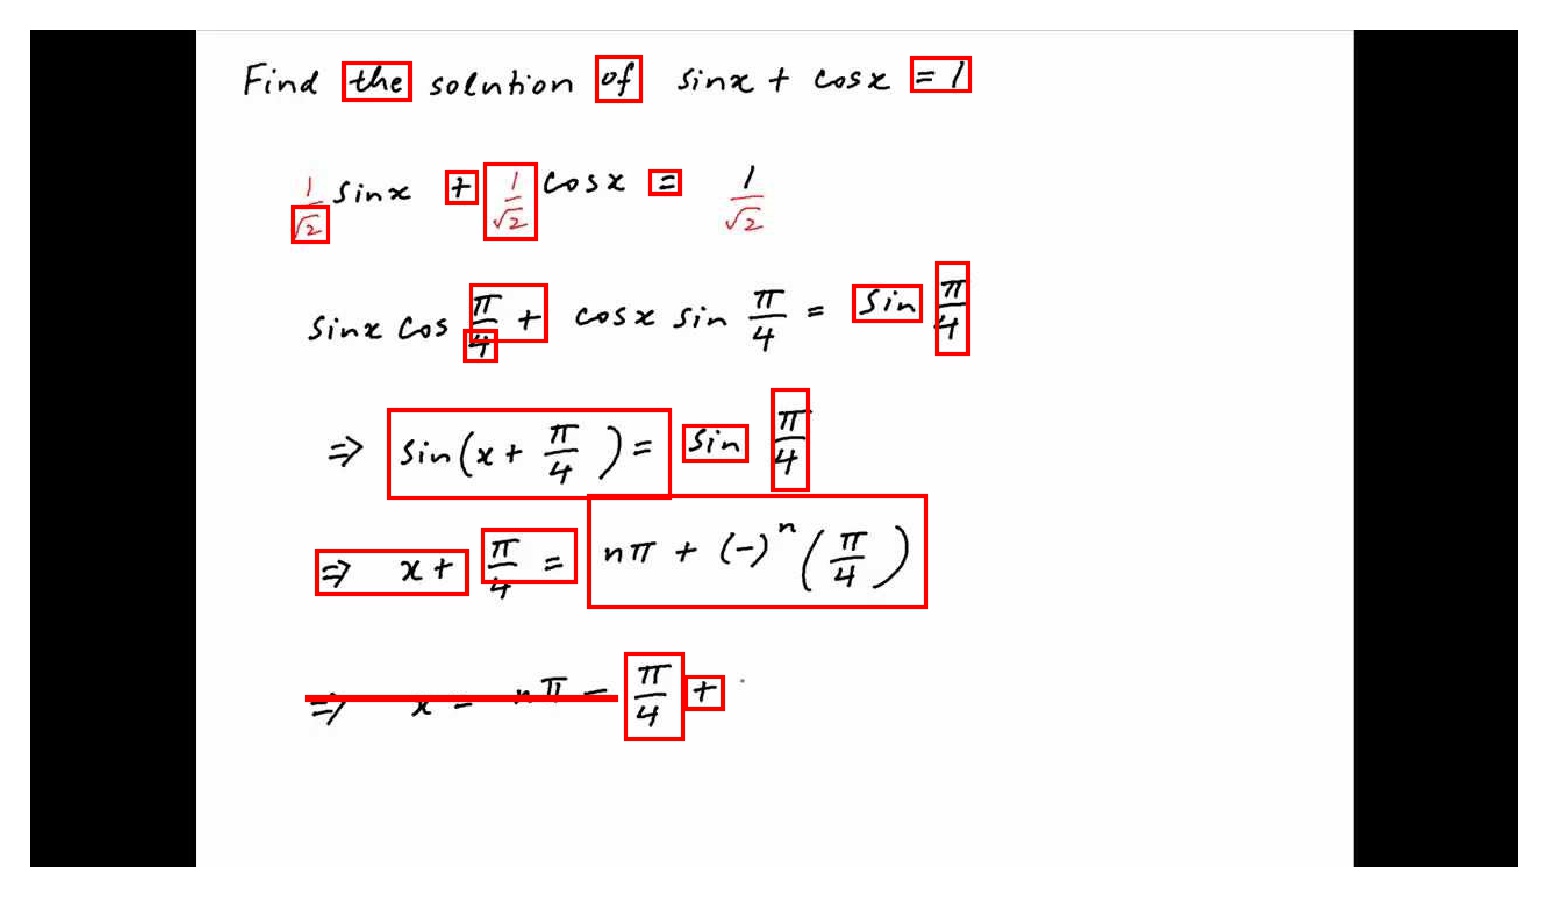 Find the solution of sinx + cosx = 1
1/√2 sinx + 1/√2 cosx = 1/√2
sinx cos π/4 + cosx sin π/4 = sin π/4
⇒ sin(x + π/4) = sin π/4
⇒ x + π/4 = nπ + (-)ⁿ (π/4)
⇒ x = nπ - π/4 +